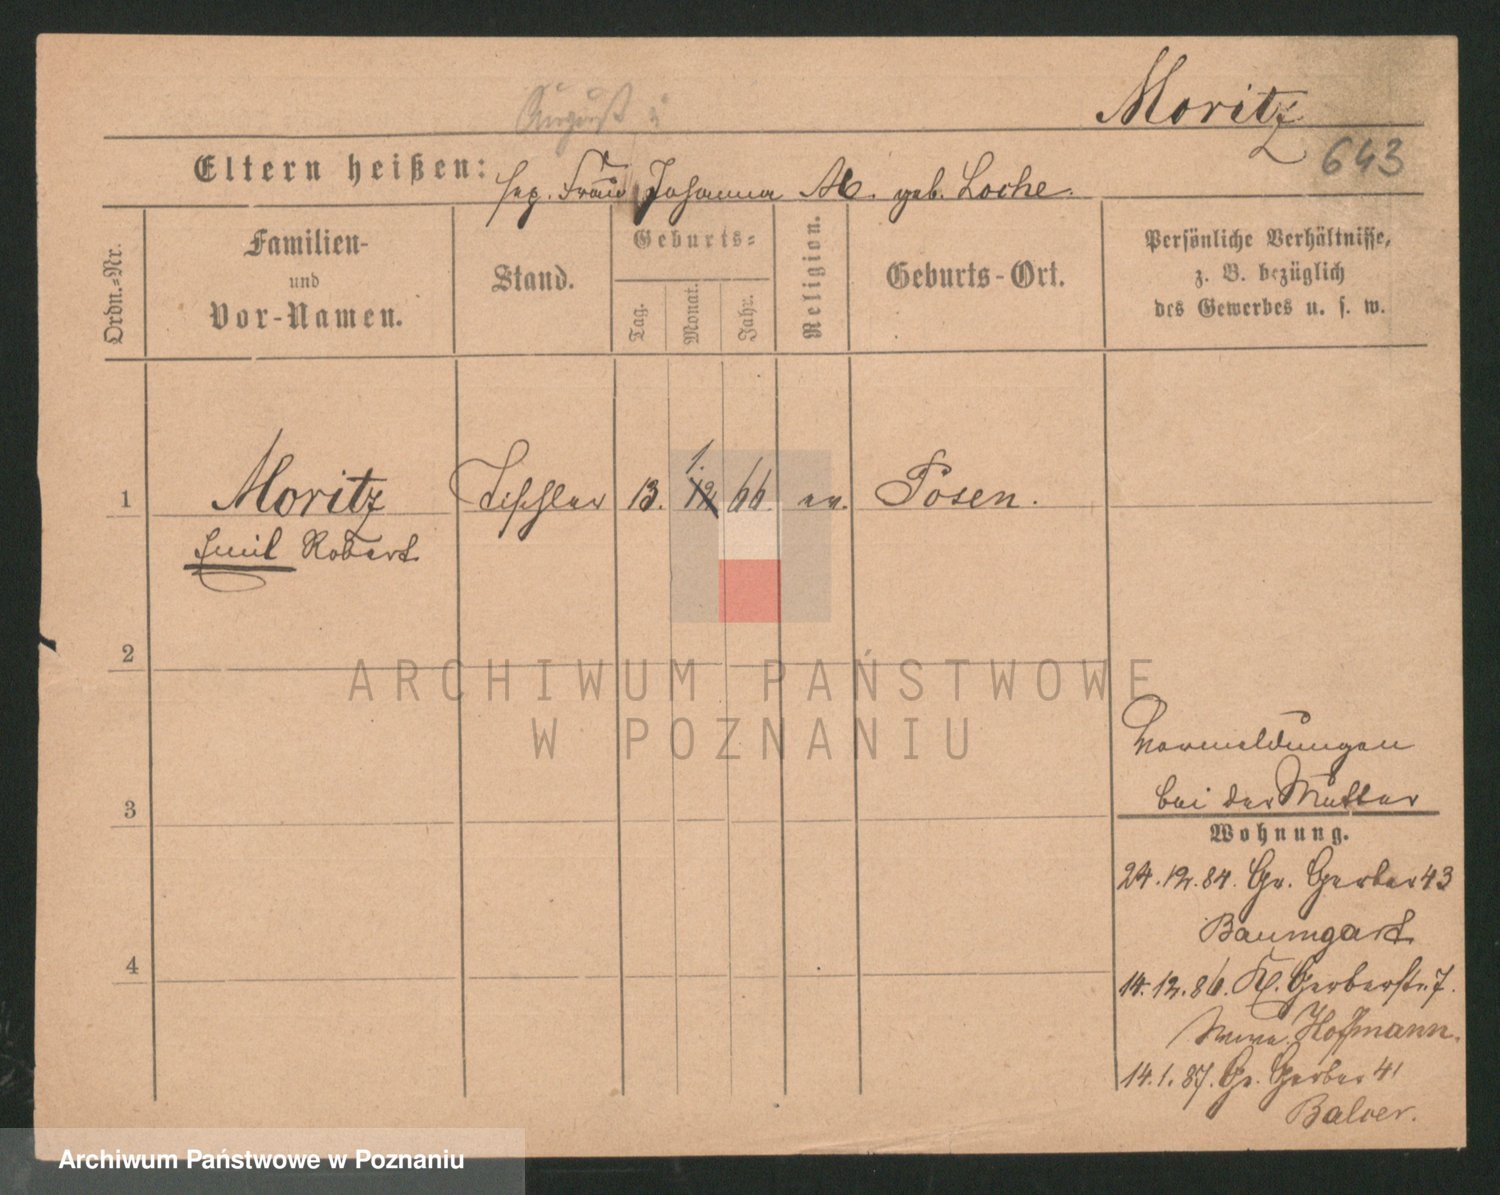 Moritz
643
August u
Eltern heißen: sep. Frau Johanna M. geb. Loche.
Ordn.-Nr.
Familien-
und
Vor-Namen.
Stand.
Geburts-
Tag.
Monat.
Jahr.
Religion.
Geburts-Ort.
Persönliche Verhältnisse,
z. B. bezüglich
des Gewerbes u. s. w.
1 Moritz Tischler 13. 12 1. 66. ev. Posen.
Emil Robert
2
ARCHIWUM PAŃSTWOWE
W POZNANIU
Vormeldungen
bei der Mutter
3
Wohnung.
24.12.84. Gr. Gerber 43
Baumgart
4
14.12.86. Kl. Gerberstr. 7.
Hoffmann.
14.1.87. Gr. Gerber 41
Balver.
Archiwum Państwowe w Poznaniu